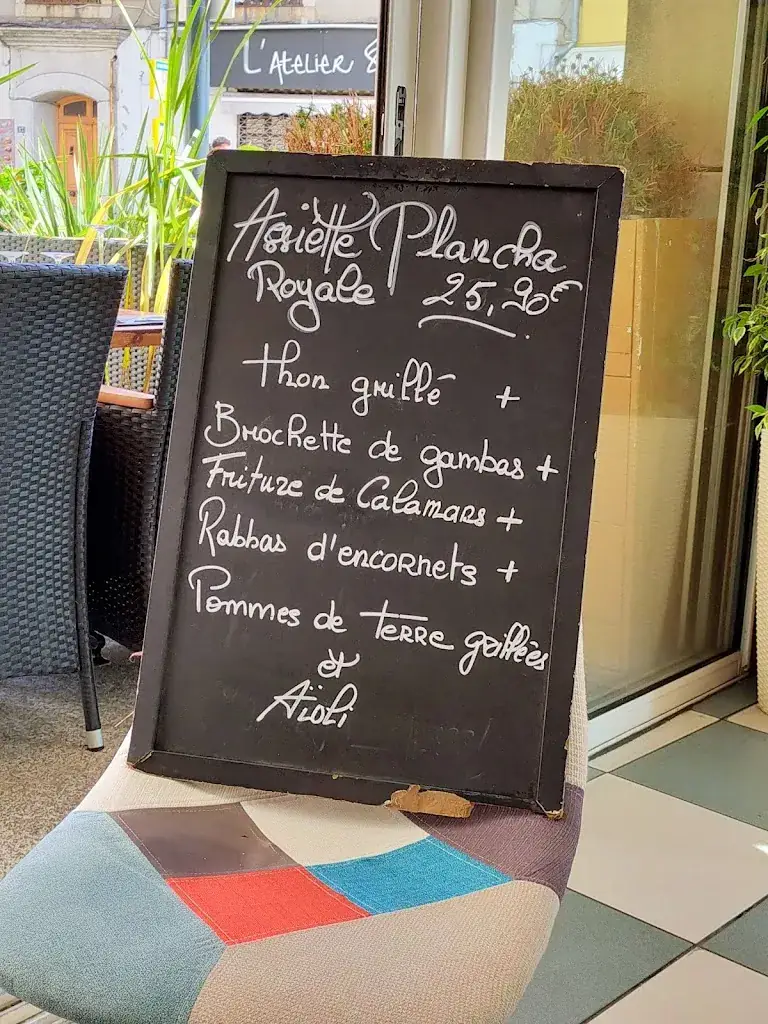 L'Atelier &
Assiette Plancha
Royale 25,90€
thon grillé +
Brochette de gambas +
Friture de Calamars +
Rabbas d'encornets +
Pommes de terre grillées
et
Aïoli